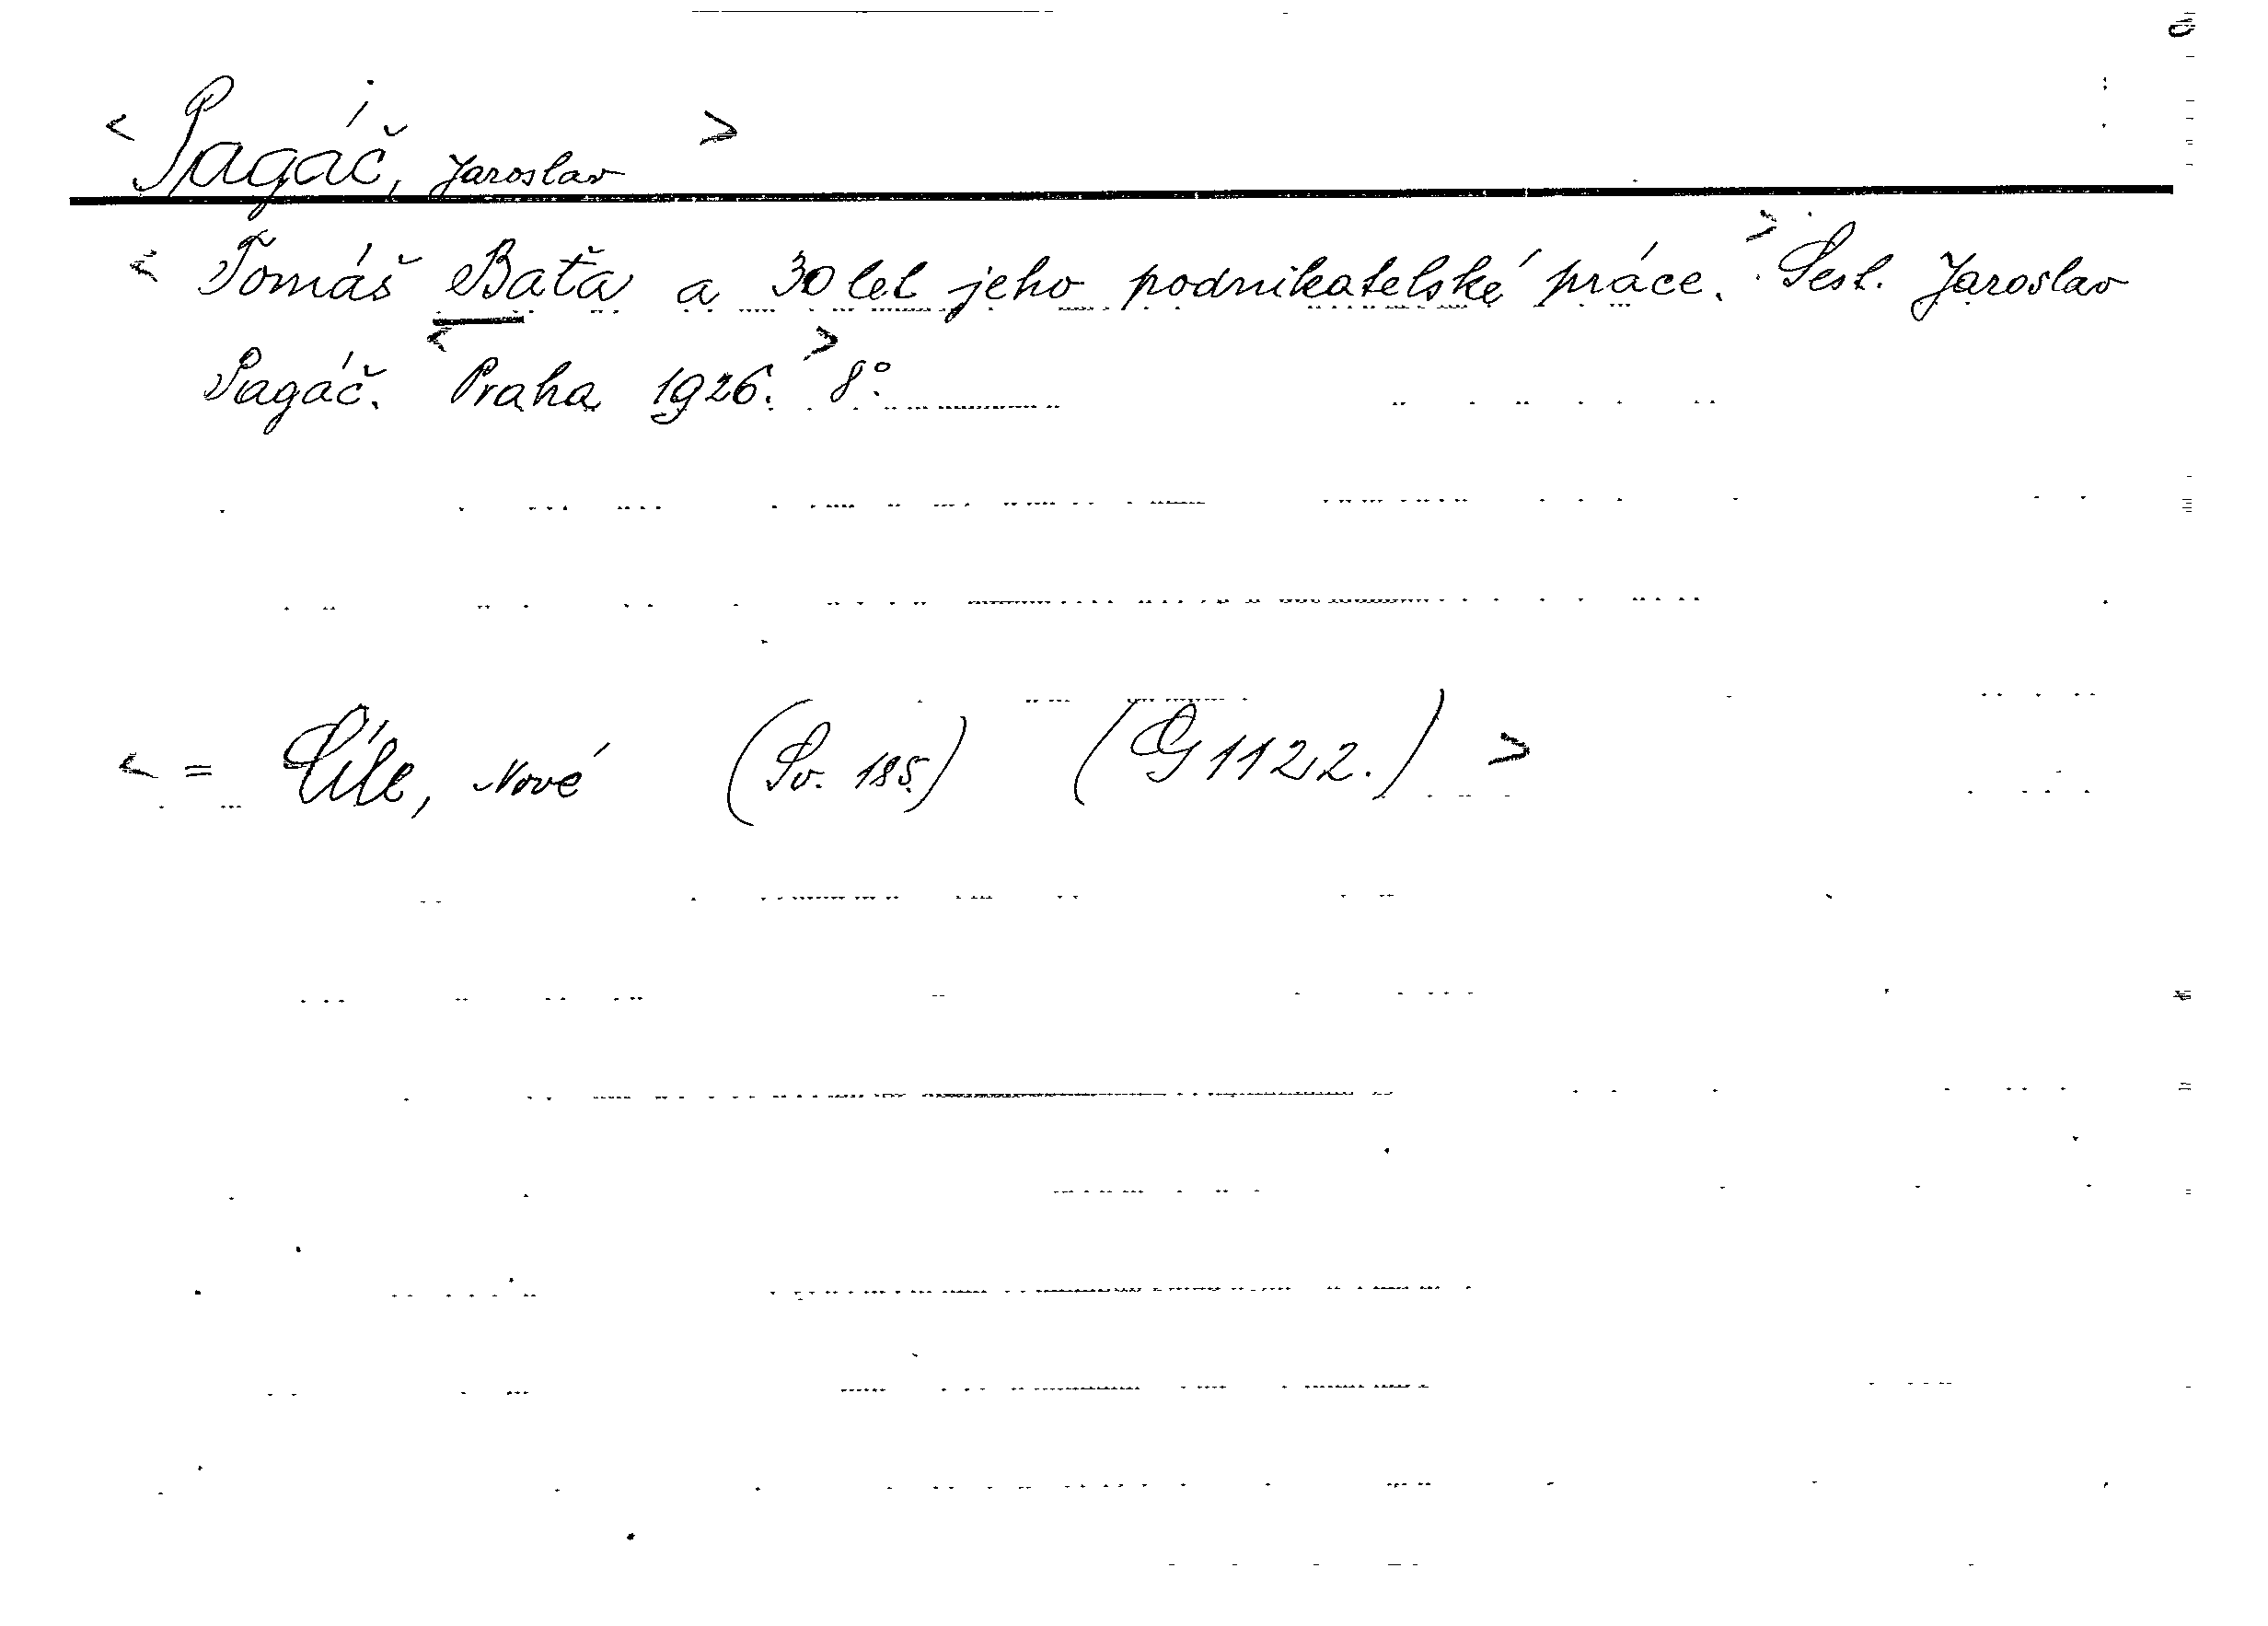 < Pagáč, Jaroslav >
< Tomáš Baťa a 30 let jeho podnikatelské práce. > Sest. Jaroslav
Pagáč. < Praha 1926. > 8°.
< = Cíle, Nové (Sv. 185.) (G 1122.) >